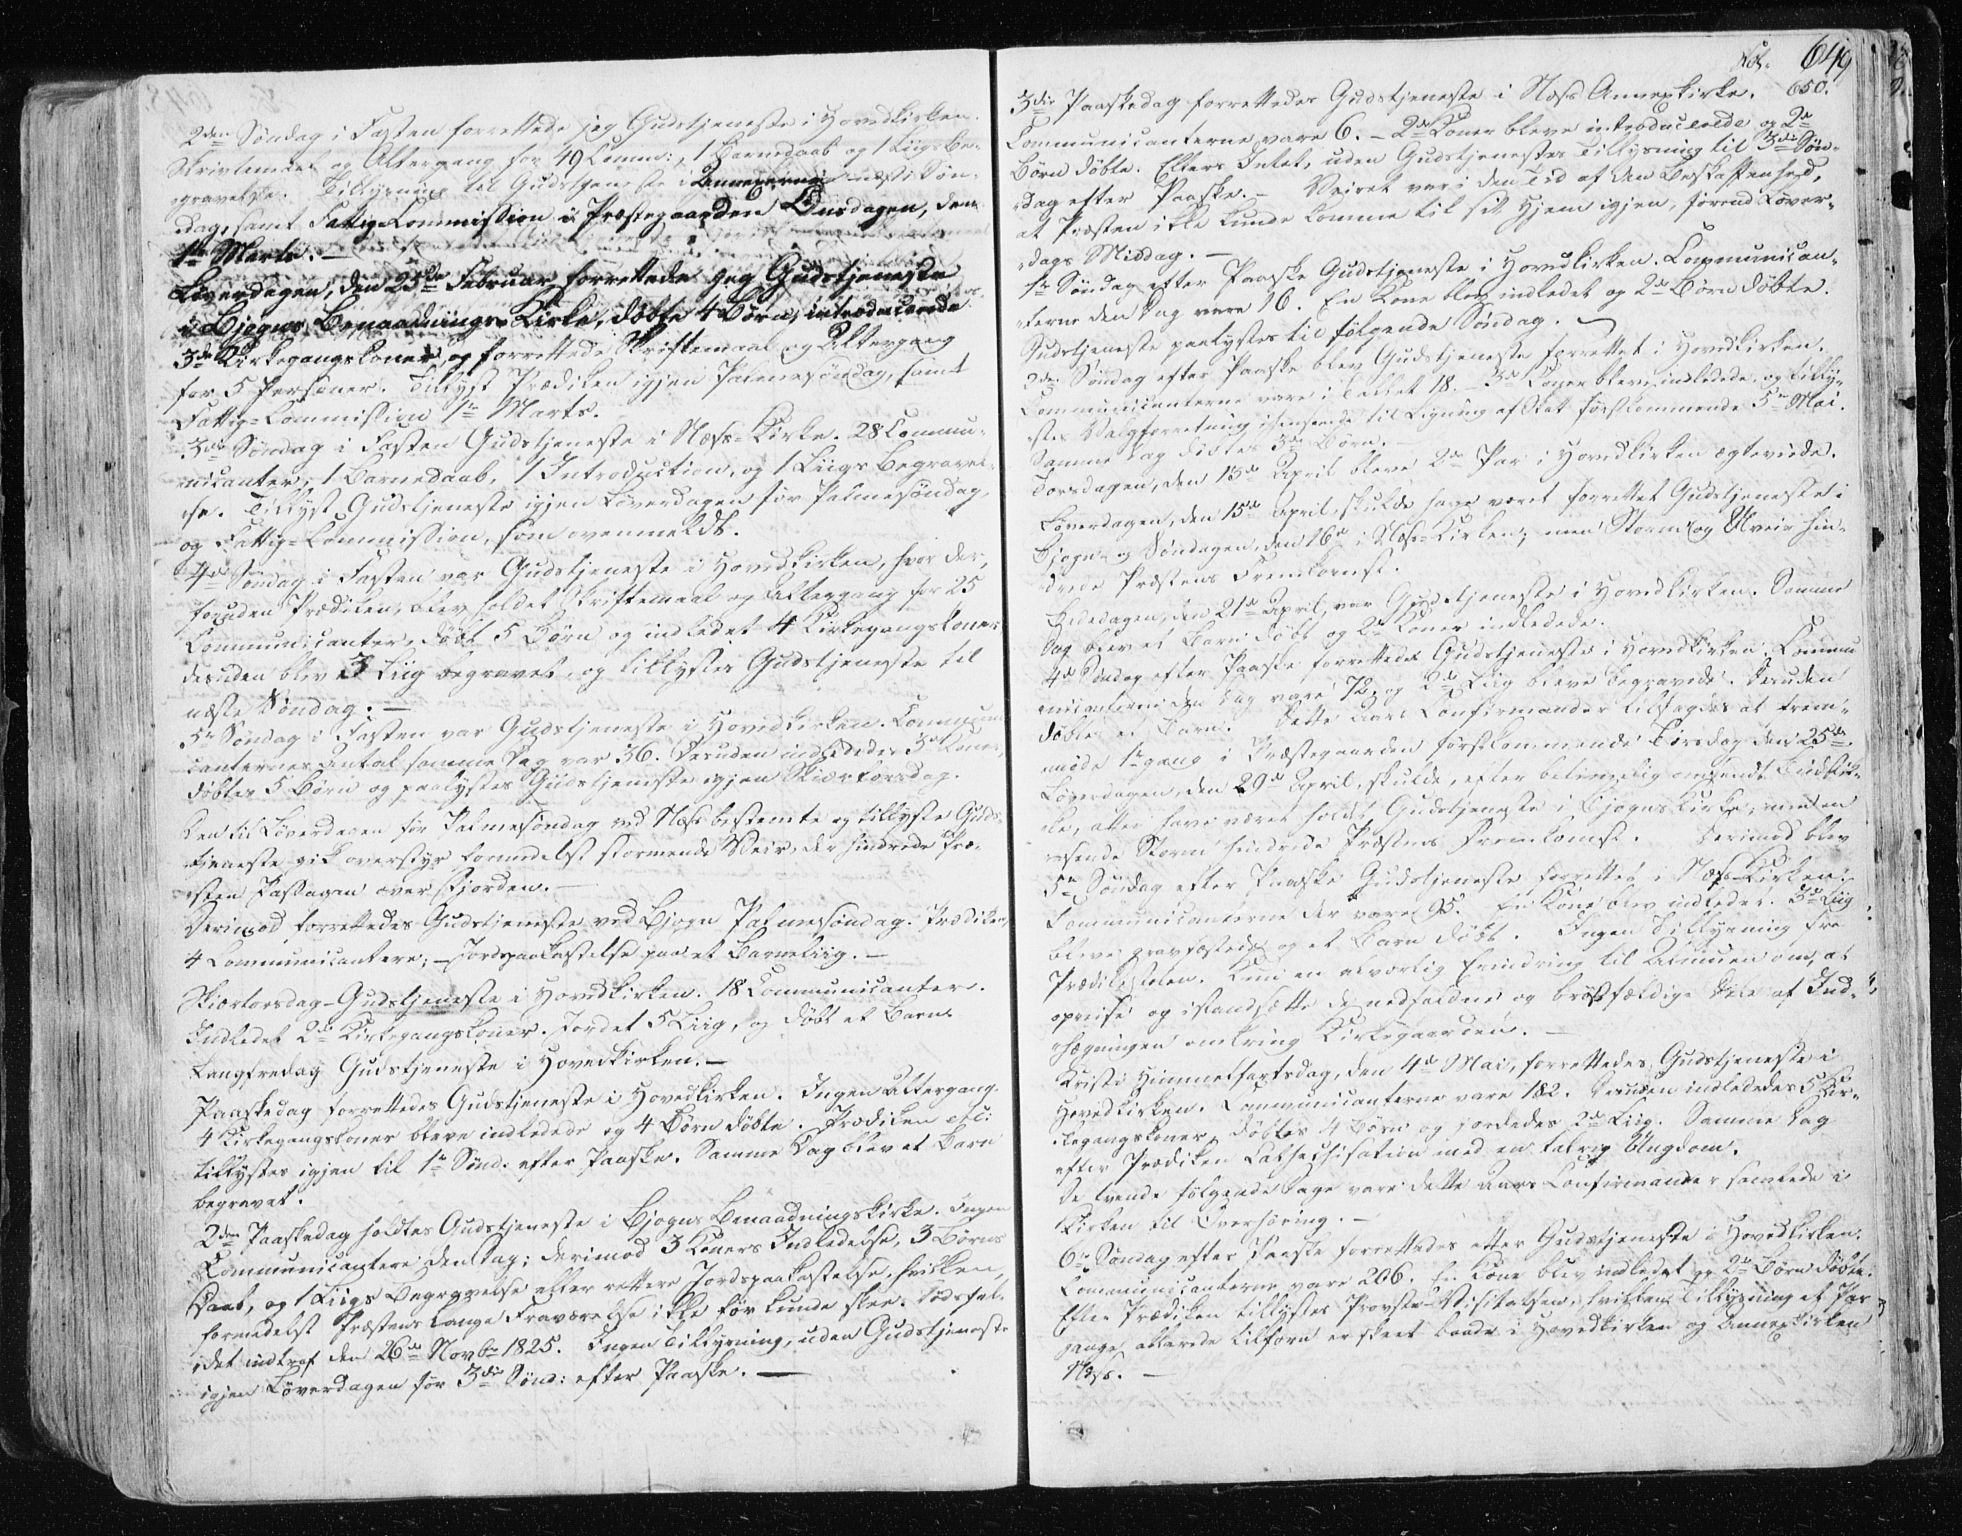 2den Søndag i Fasten forrettede jeg Gudstjeneste i Hovedkirken.
Skriftemaal og Altergang for 49 Comm:, 1 Barnedaab og 1 Liigsbe-
gravelse. Tillysning til Gudstjeneste i Annexerne næste Søn-
dag, samt Fattig-Commission i Præstegaarden Onsdagen, den
1ste Marts. —
Løverdagen, den 25de Februar forrettede jeg Gudstjeneste
i Bjogns Benaadnings-Kirke, døbte 4 Børn, introducerede
3de Kirkegangskoner og forrettede Skriftemaal og Altergang
for 5 Personer. Tillyst Prædiken igjen Palmesøndag, samt
Fattig-Commission 1ste Marts.
3die Søndag i Fasten Gudstjeneste i Næs-Kirke. 28 Commu-
nicanter, 1 Barnedaab, 1 Introduction, og 1 Liigs Begravel-
se. Tillyst Gudstjeneste igjen Løverdagen før Palmesøndag,
og Fattig-Commission, som ovenmeldt.
4de Søndag i Fasten var Gudstjeneste i Hovedkirken, hvor der,
foruden Prædiken, blev holdet Skriftemaal og Altergang for 25
Communicanter, døbt 5 Børn og indledet 4 Kirkegangskoner
desuden blev 3 Liig begravet, og tillystes Gudstjeneste til
næste Søndag. —
5te Søndag i Fasten var Gudstjeneste i Hovedkirken. Communi
canternes Antal samme Dag var 36. Desuden indlededes 3de Koner,
døbtes 5 Børn og paalystes Gudstjeneste igjen Skiærtorsdag.
Den til Løverdagen før Palmesøndag ved Næs bestemte og tillyste Guds-
tjeneste gik overstyr formedelst stormende Veir, der hindrede Præ-
sten Passagen over Fjorden. —
Derimod forrettedes Gudstjeneste ved Bjogn Palmesøndag. Prædiken,
4 Communicantere; — Jordspaakastelse paa et Barneliig. —
Skiærtorsdag-Gudstjeneste i Hovedkirken. 18 Communicanter.
Indledet 2de Kirkegangskoner. Jordet 5 Liig, og døbt et Barn.
Langfredag Gudstjeneste i Hovedkirken. —
Paaskedag forrettedes Gudstjeneste i Hovedkirken. Ingen Altergang.
4 Kirkegangskoner bleve indledede og 4 Børn døbte. Prædiken
tillystes igjen til 1ste Sønd. efter Paaske. Samme Dag blev et Barn
begravet.
2den Paaskedag holdtes Gudstjeneste i Bjogns Benaadningskirke. Ingen
Communicantere den Dag; derimod 3 Koners Indledelse, 3 Børns
Daab, og 1 Liigs Begravelse eller rettere Jordspaakastelse, hvilken,
formedelst Præstens lange Fraværelse ikke før kunde skee. Dødsfal-
idet indtraf den 26de Novbr 1825. Ingen Tillysning, uden Gudstjeneste
igjen Løverdagen før 3die Sønd: efter Paaske. —
Fol. 649
650.
3die Paaskedag forrettedes Gudstjeneste i Næss Annexkirke.
Communicanterne vare 6. — 2de Koner bleve introducerede og 2de
Børn døbte. Ellers Intet, uden Gudstjenestes Tillysning til 3die Søn-
dag efter Paaske. — Veiret var i den Tid af den Beskaffenhed,
at Præsten ikke kunde komme til sit Hjem igjen, førend Løver-
dags Middag. —
1ste Søndag efter Paaske Gudstjeneste i Hovedkirken. Communican-
terne den Dag vare 16. En Kone blev indledet og 2de Børn døbte.
Gudstjeneste paalystes til følgende Søndag. —
2den Søndag efter Paaske blev Gudstjeneste forrettet i Hovedkirken.
Communicanterne vare i Tallet 18. — 3de Koner bleve indledede, og tilly-
stes Valgforretning til Ligning af Skat førstkommende 5te Mai.
Samme Dag døbtes 3de Børn. —
Torsdagen, den 13de April bleve 2de Par i Hovedkirken ægteviede.
Løverdagen, den 15de April skulde have været forrettet Gudstjeneste i
Bjogn- og Søndagen, den 16de i Næs-Kirken; men Storm og Uveir hin-
drede Præstens Fremkomst.
Bededagen, den 21de April, var Gudstjeneste i Hovedkirken. Samme
Dag blev et Barn døbt og 2de Koner indledede.
4de Søndag efter Paaske forrettedes Gudstjeneste i Hovedkirken. Commu
nicanterne den Dag vare 72, og 2de Liig bleve begravede. Desuden
døbtes et Barn. Dette Aars Confirmander tilsagdes at frem-
møde 1ste Gang i Præstegaarden førstkommende Torsdag den 25de.
Løverdagen, den 29de April, skulde, efter betimelig omsendt Budstik-
ke, atter have været holdt Gudstjeneste i Bjogns Kirke; men en
rasende Storm hindrede Præstens Fremkomst. Derimod blev
5te Søndag efter Paaske Gudstjeneste forrettet i Næs-Kirken.
Communicanterne der vare 95. En Kone blev indledet. 3de Liig
bleve gravfæstede og et Barn døbt. Ingen Tillysning fra
Prædikestolen. Kun en alvorlig Erindring til Almuen om, at
opreise og istandsætte de nedfaldne og brøstfældige Dele af Ind-
hægningen omkring Kirkegaarden. —
Kristi Himmelfartsdag, den 4de Mai, forrettedes Gudstjeneste i
Hovedkirken. Communicanterne vare 182. Desuden indlededes 5 Kir-
kegangskoner, døbtes 4 Børn og jordedes 2de Liig. Samme Dag
efter Prædiken Cathechisation med en talrig Ungdom.
De tvende følgende Dage vare dette Aars Confirmander samlede i
Kirken til Overhøring. —
6te Søndag efter Paaske forrettedes atter Gudstjeneste i Hovedkirken.
Communicanterne vare 206. En Kone blev indledet og 2de Børn døbte.
Efter Prædiken tillystes Provste-Visitatsen, hvilken Tillysning et Par
Gange allerede tilforn er skeet baade i Hovedkirken og Annexkirken
Næss. —